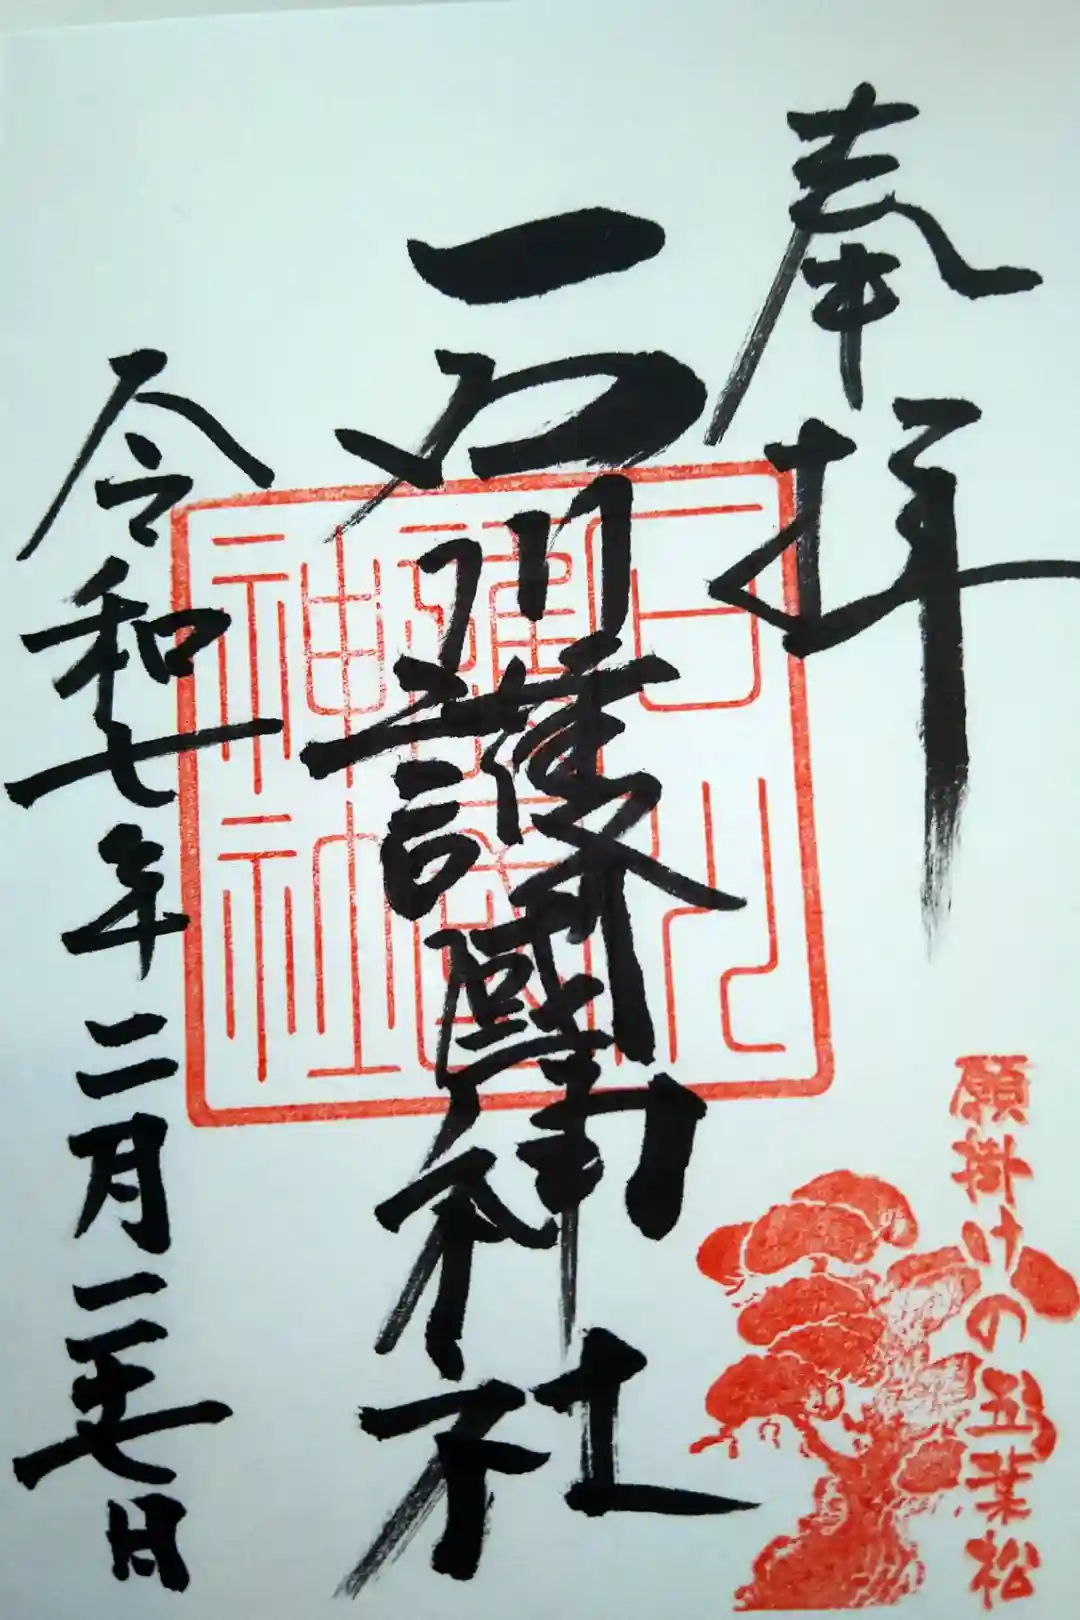 奉拝
石川護國神社
令和七年二月二十七日
石川
護國
神社
願掛けの五葉松